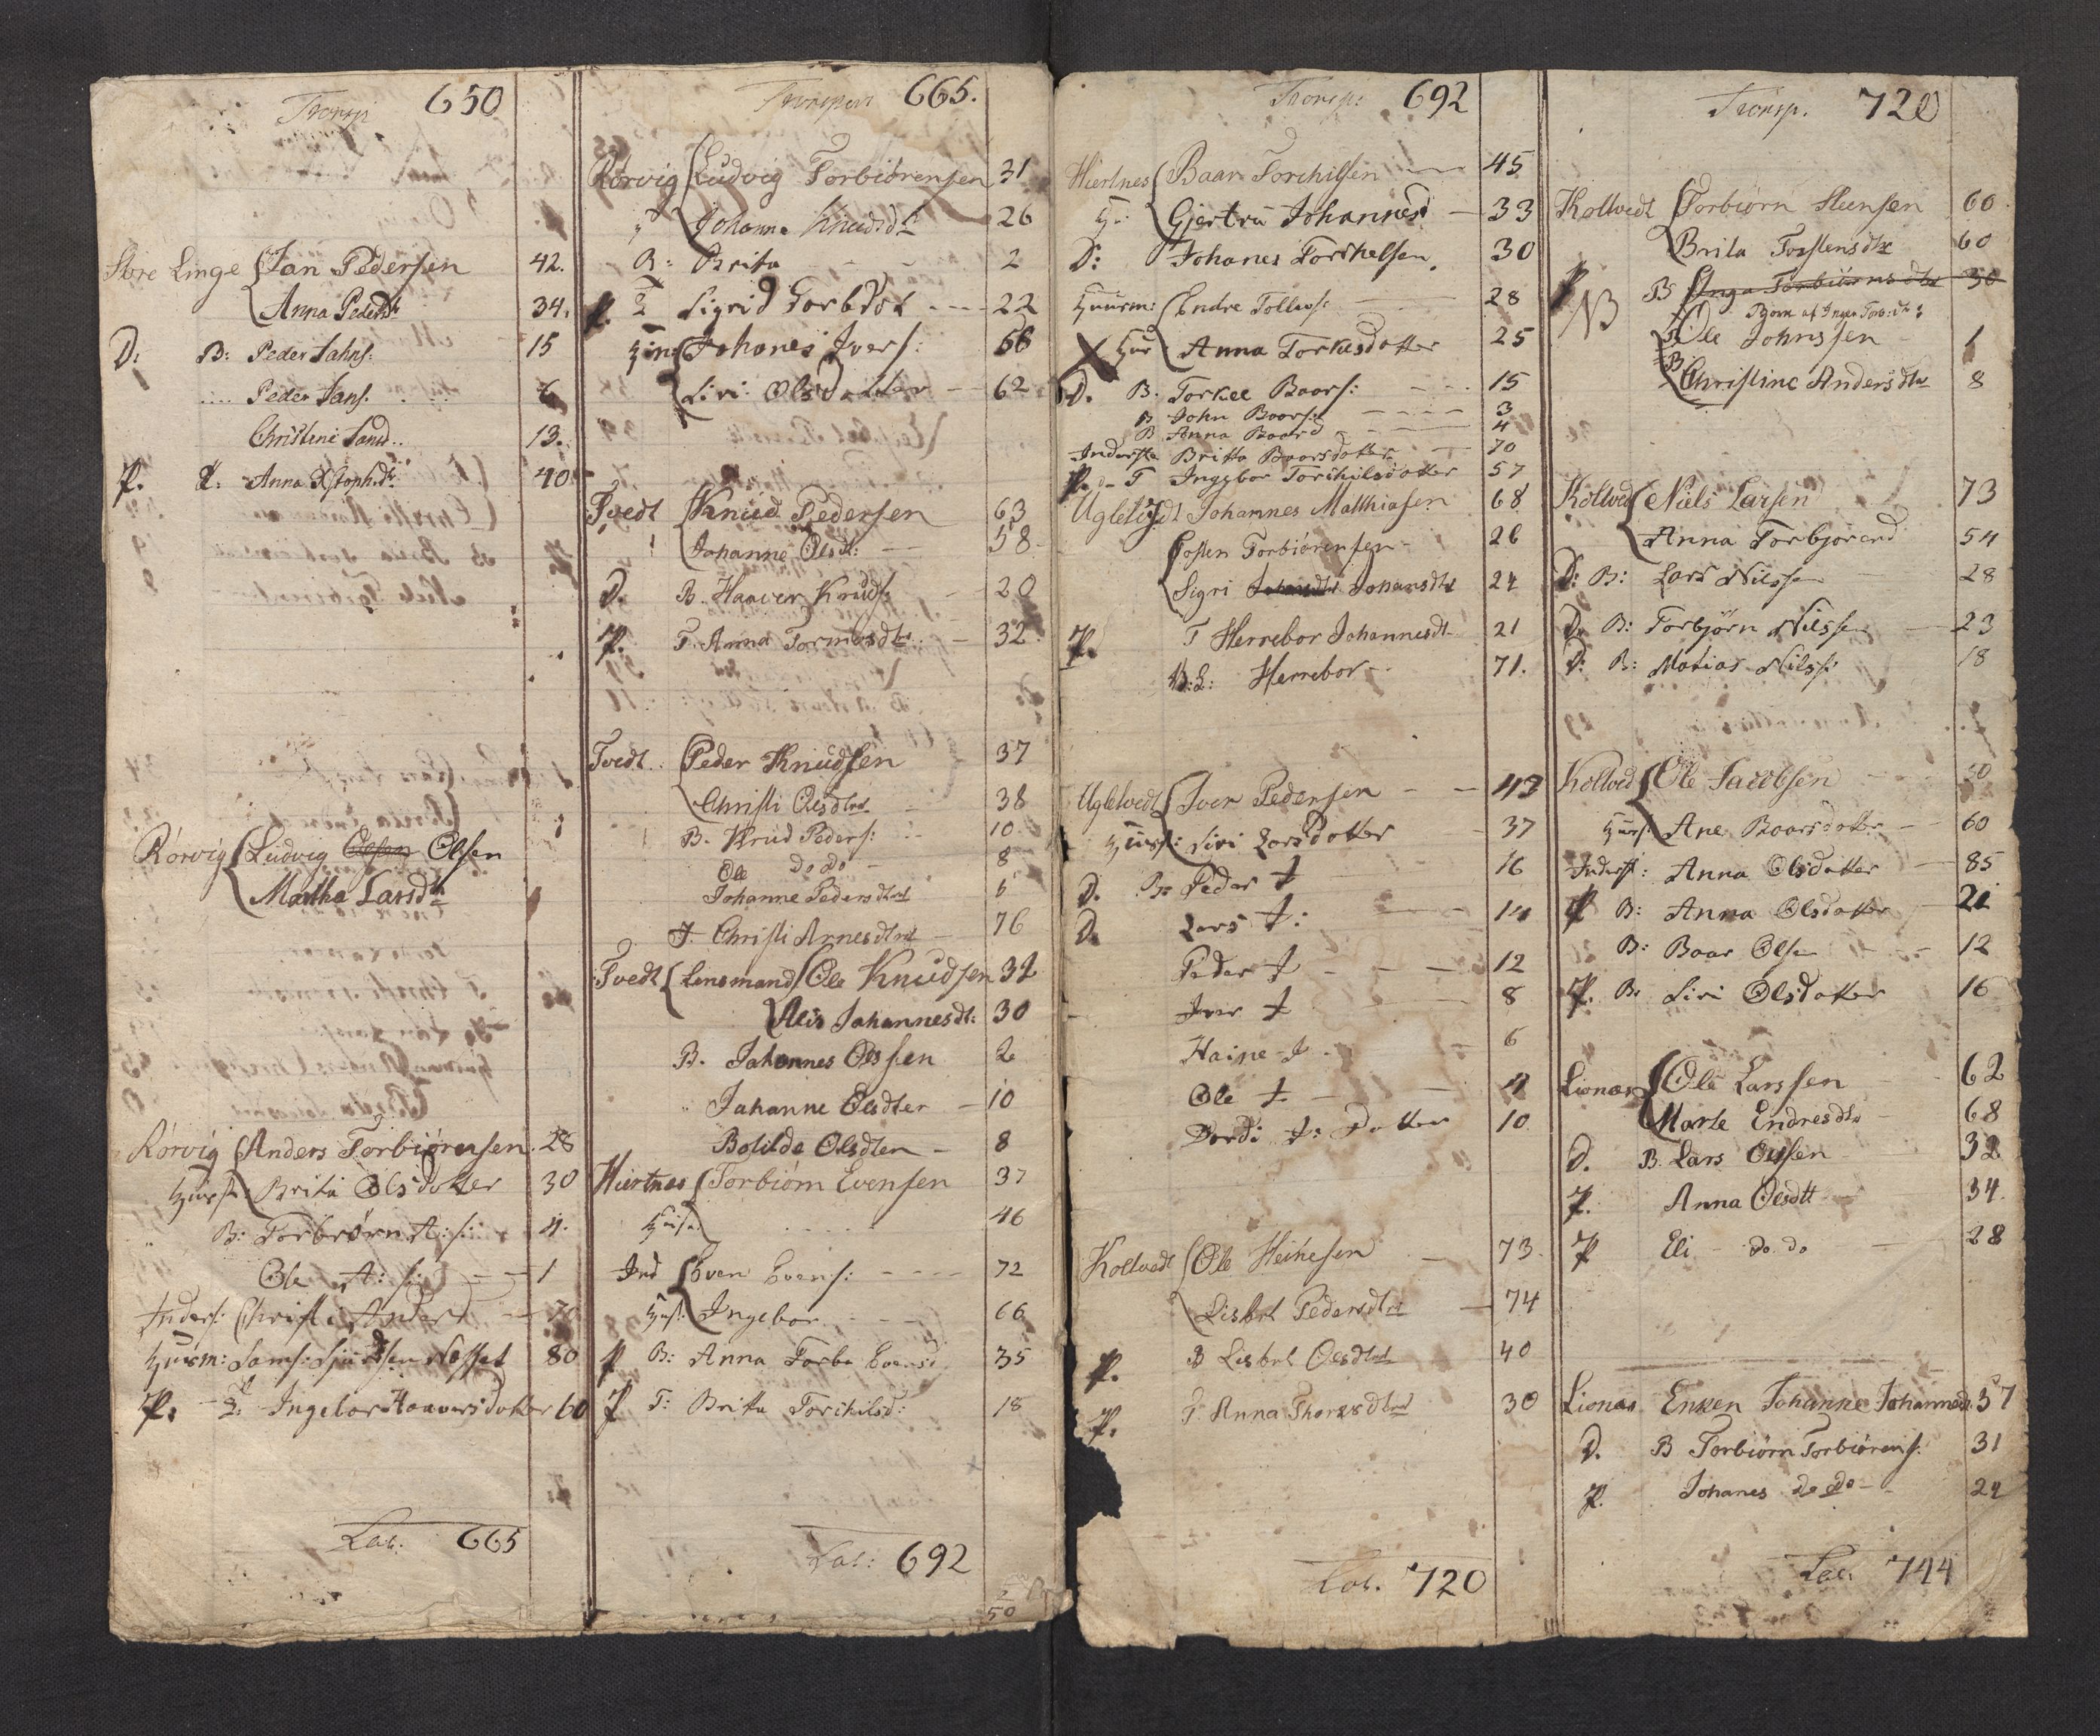 Transp 650
Store Linge Jan Pedersen 42.
Anna Pedersdt 34.
D: B: Peder Jahns: 15
Peder Jans: 6
Christine Jansd.. 13.
P. T: Anna Xstophdt 40
Rørvig Ludvig Olsen Olsen
Martha Larsdt
Rørvig Anders Torbiørensen 28
Huusf: Brita Olsdotter 30
B: Torbiørn A: s: 4.
Ole A: s: 1
Inders: Christi Andersd
Huusm: Sams: Sjursen Næsset 80
P. T. Ingebor Haaversdotter 60
Lat. 665
Transport 665.
Rørvig Ludvig Torbiørensen 31
Johanna Knudsdt 26
B: Brita 2
P. T Sigrid Torbdot 22
Johanes Ivers: 68
Siri Olsdatter 62
Tvedt Knud Pedersen 63
Johanne Olsdt: 58
D. B. Haaver Knuds: 20
P. T. Anna Tormosdtr 32
Tvedt Peder Knudsen 37
Christi Olsdtr 38
B. Knud Peders: 10
Ole Do Do 8
Johanne Pedersdtr 6
J. Christi Arnesdtr 76
Tvedt Lensmand Ole Knudsen 32
Alis Johannesdt: 30
B. Johannes Olssen 2
Johanne Olsdter 10
Bolilde Olsdter 8
Hiertnes Torbiørn Evensen 37
Huusf: 46
Ind Even Evens: 72
Husf: Ingebor 66
P B: Anna Torbe Evensd 35
P T: Britta Torchilsd: 18
Lat: 692
Transp: 692
Hiertnes Baar Torchilsen 45
Hu: Gjertru Johannesd 33
D: Johanes Torkelsen 30
Huusm: Endre Tollevs: 28
Hus Anna Torkesdotter 25
D. B. Torkel Boors: 15
B John Boors: 3
B Anna Boord 4
Inderste Britta Boorsdotter 70
P. T Ingebor Torchilsdotter 57
Ugletvedt Johannes Matthiasen 68
Tosten Torbiørensen 26
Sigri Johansdtr Johansdtr 24
P. T Herrebor Johannesdt 21
Herrebor 71.
Ugletvedt Iver Pedersen 47
Huusf: Siri Larsdotter 37
D. B: Peder I 16
D. Lars I: 14
Peder I 12
Iver I 8
Haine I 6
Ole I 4
Dordi I: Dotter 10
Koltvedt Ole Heinesen 73
Lisbet Pedersdtr 74
P. B Lisbet Olsdtr 40
P. T Anna Thoresdtr 30
Lat. 720
Transp. 720
Koltvedt Torbiørn Steensen 60
Brita Torstensdtr 60
P B Inga Torbiørnsdtr 30
NB Børn af Inger Torb:dtr:
B Ole Johnssen 1
B Christine Andersdtr 8
Koltved Niels Larsen 73
Anna Torbjørnsd 54
D: B: Lars Nilssen 28
D. B: Torbjørn Nilssen 23
D: B: Matias Nilss: 18
Koltved Ole Jacobsen 50
Huusf: Ane Boorsdotter 60
Inderst: Anna Olsdotter 85
P B: Anna Olsdotter 21
B: Boar Olsen 12
P. B: Siri Olsdotter 16
Lionæs Ole Larssen 62
Marte Endresdtr 68
D. B. Lars Olssen 32
P. Anna Olsdtt 34
P Eli Do Do 28
Lionæs Enken Johanne Johannesd. 57
D. B Torbiørn Torbiørens: 31
P. Johanes Do Do 24
Lat. 744